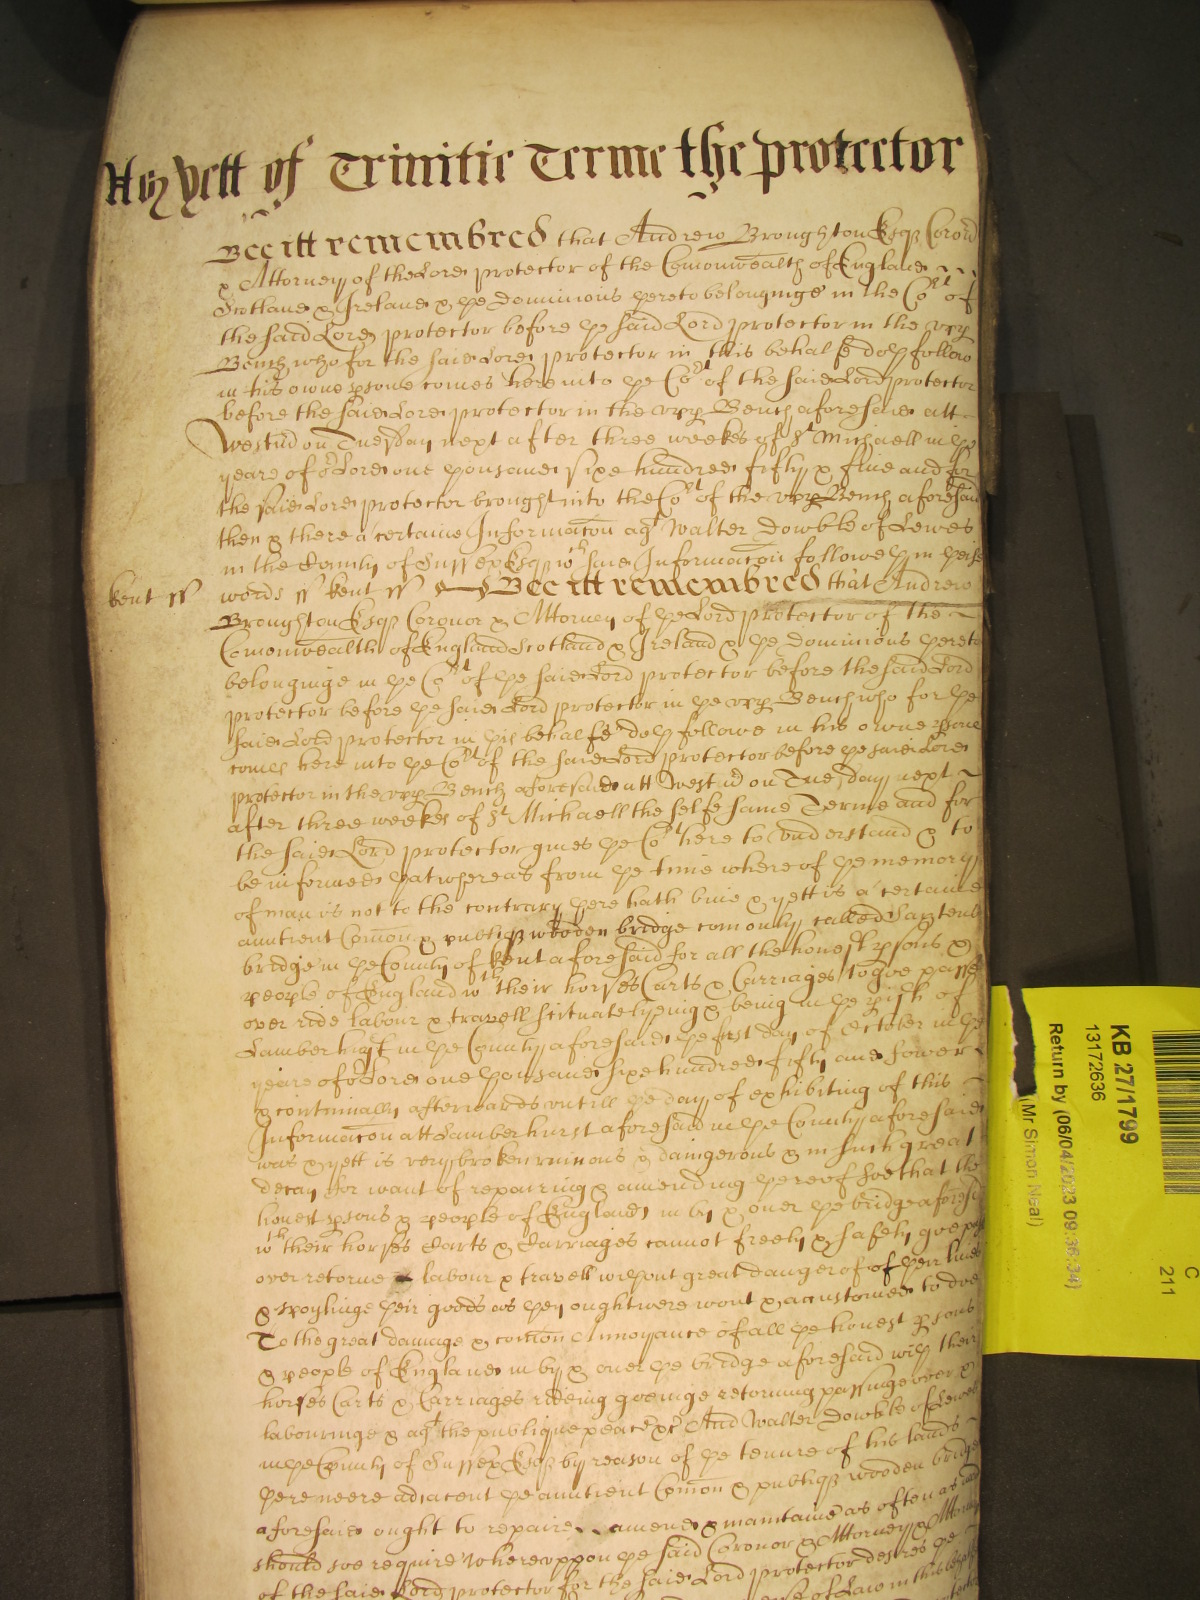 As yett of Trinitie Terme the protector
Bee itt remembred that Andrew Broughton Esqr Coron
& Attorney of the Lord protector of the Comonwealth of England
Scotland & Ireland & ye Dominions yereto belonginge in the Cort of
the said Lord protector before ye said Lord protector in the vpp
Bench who for the said Lord protector in this behalfe doth followe
in his owne psone comes here into ye Cort of the said Lord protector
before the said Lord protector in the vpp Bench aforesaid att
Westm on Tuesday next after three weekes of St Michaell in ye
yeare of or Lord one thousand sixe hundred fifty & five and for
the said Lord protector brought into the Cort of the vpp Bench aforesaid
then & there a certaine Informacon agt Walter Dowble of Lewes
in the County of Sussex Esqr wch said Information followeth in these
kent ss words ss kent ss Bee itt remembred that Andrew
Broughton Esqr Coronor & Attorney of ye Lord protector of the
Comonwealth of England Scotland & Ireland & ye Dominions yereto
belonginge in ye Cort of ye said Lord protector before the said Lord
protector before ye said Lord protector in ye vpp Bench who for ye
said Lord protector in yis behalfe doth followe in his owne psone
comes here into ye Cort of the said Lord protector before ye said Lord
protector in the vpp Bench aforesaid att Westm on Tuesday next
after three weekes of St Michaell the selfe same Terme and for
the said Lord protector gives ye Cort here to vnderstand & to
be informed yat whereas from ye time whereof ye memory
of man is not to the contrary yere hath bine & yett is a certaine
auntient Comon & publiq wooden bridge comonly called
bridge in ye County of kent aforesaid for all the honest psons &
people of England wth their horses Carts & Carriages to goe passe
over ride labour & travell scituate lyeing & being in ye pish of
Lamberhurst in ye County aforesaid ye first day of October in ye
yeare of or Lord one thousand sixe hundred fifty and fower
& continually afterwards vntill ye day of exhibiting of this
Informacon att Lamberhurst aforesaid in ye County aforesaid
was & yett is very broken ruinous & daingerous & in such great
decay for want of repairing & amending yereof soe that the
honest psons & people of England in by & over ye bridge aforesd
wth their horses Carts & Carriages cannot freely & safely goe passe
over retorne labour & travell without great danger of of yeir lives
& spoylinge yeir goods as yey ought were wont & accustomed to doe
To the great damage & comon Annoyance of all ye honest psons
& people of England in by & over ye bridge aforesaid with their
horses Carts & Carriages rideing goeinge retorning passinge over &
labouringe & agt the publique peace &c And Walter Dowble of Lewes
in ye County of Sussex Esqr by reason of ye tenure of his lands
yere neere adjacent ye auntient Comon & publiq wooden bridge
aforesaid ought to repaire amend & maintaine as often as need
should soe require Wherevppon ye said Coronor & Attorney
of the said Lord protector for the said Lord protector desires ye
of Law in this
KB 27/1799
13172636
Return by (06/04/2023 09:36:34)
(Mr Simon Neal)
C
211